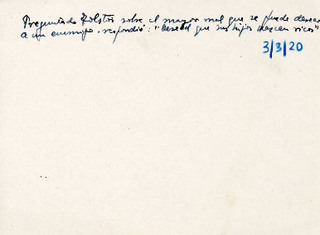 Preguntado Tolstoi sobre el mayor mal que se puede desear
a un enemigo, respondió: "Desead que sus hijos nazcan ricos"
3/3/20